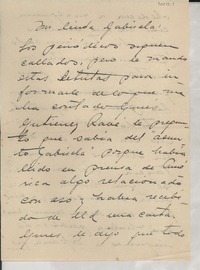 Mi linda Gabriela:
Los periódicos siguen
callados, pero le mando
estas letritas para in
formarle de lo que me
ha contado Ginés.
Gutierrez Raví le pregun
tó qué sabía del asun
to Gabriela porque había
leído en prensa de Amé
rica algo relacionado
con eso; y había recibi
do de Ud. una carta.
Ginés le dijo que todo